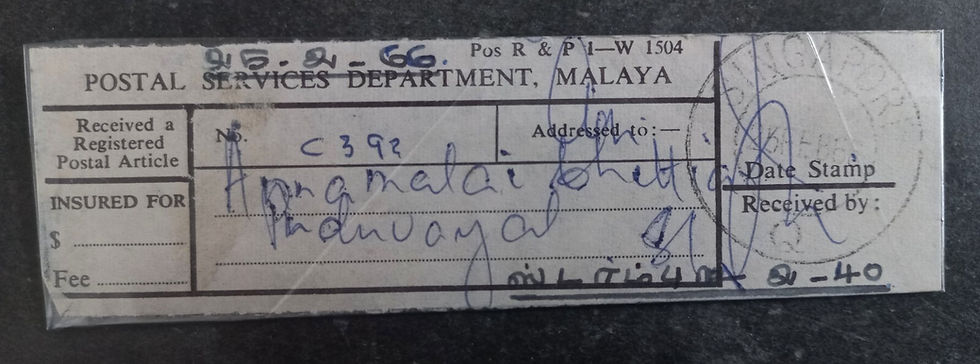 ௨5-௨-66. Pos R & P 1—W 1504
POSTAL SERVICES DEPARTMENT, MALAYA
Received a
Registered
Postal Article
No. C 392
Addressed to:—
Annamalai Chettiar
Puduvayal
INSURED FOR
$
Fee
SINGAPORE
Date Stamp
Received by:
ஸ்டாம்பு ௨-40